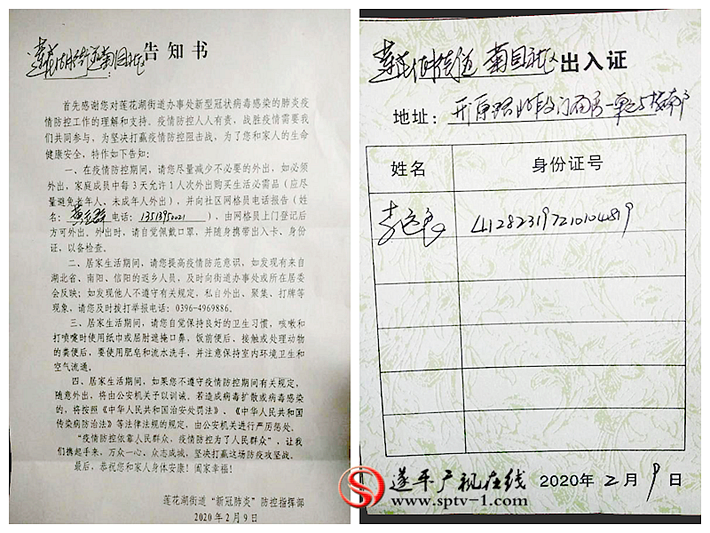 莲花湖街道菊园社区告知书
首先感谢您对莲花湖街道办事处新型冠状病毒感染的肺炎疫
情防控工作的理解和支持。疫情防控人人有责，战胜疫情需要我
们共同参与，为坚决打赢疫情防控阻击战，为了您和家人的生命
健康安全，特作如下告知：
一、在疫情防控期间，请您尽量减少不必要的外出，如必须
外出，家庭成员中每3天允许1人次外出购买生活必需品（应尽
量避免老年人、未成年人外出），并向社区网格员电话报告（姓
名：电话：13513950021），由网格员上门登记后
方可外出。外出时，请自觉佩戴口罩，并随身携带出入卡、身份
证，以备检查。
二、居家生活期间，请您提高疫情防范意识，如发现有来自
湖北省、南阳、信阳的返乡人员，及时向街道办事处或所在居委
会反映；如发现他人不遵守有关规定，私自外出、聚集、打牌等
现象，请您及时拨打举报电话：0396-4969886。
三、居家生活期间，请您自觉保持良好的卫生习惯，咳嗽和
打喷嚏时使用纸巾或屈肘遮掩口鼻，饭前便后、接触或处理动物
的粪便后，要使用肥皂和流水洗手，并注意保持室内环境卫生和
空气流通。
四、居家生活期间，如果您不遵守疫情防控期间有关规定，
随意外出，将由公安机关予以训诫，若造成病毒扩散或病毒感染
的，将按照《中华人民共和国治安处罚法》、《中华人民共和国
传染病防治法》等法律法规的规定，由公安机关进行严厉惩处。
“疫情防控依靠人民群众，疫情防控为了人民群众”，让我
们携起手来，万众一心、众志成城，坚决打赢这场防疫攻坚战。
最后，恭祝您和家人身体安康！阖家幸福！
莲花湖街道“新冠肺炎”防控指挥部
2020年2月9日
莲花湖街道菊园社区出入证
地址：
姓名 身份证号
412823197210104819
遂平广视在线
www.sptv-1.com
2020年2月9日